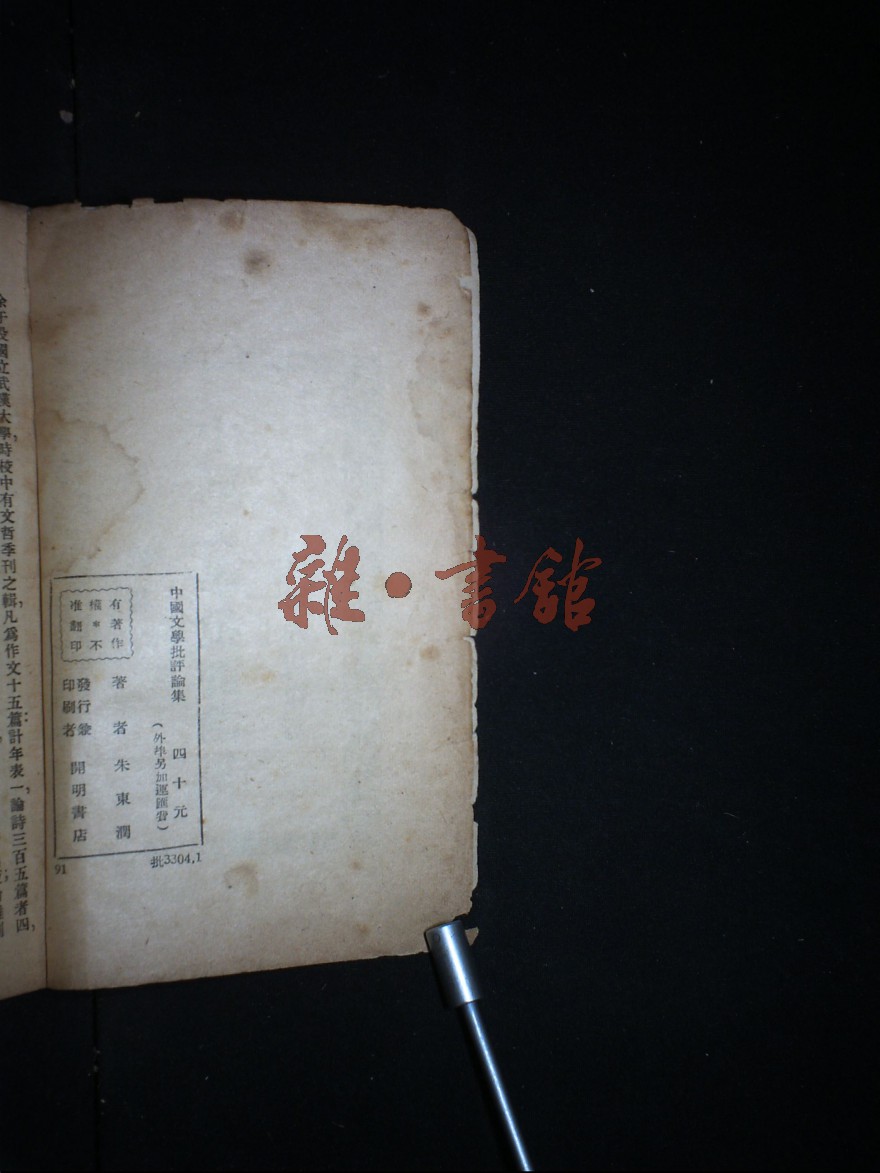 中國文學批評論集　四十元
(外埠另加運匯費)
有著作
權•不
准翻印
著者　朱東潤
發行兼
印刷者　開明書店
91
批3304,1
余于役國立武漢大學時校中有文哲季刊之輯，凡爲作文十五篇計年表一，論詩三百五篇者四，
雜•書舘